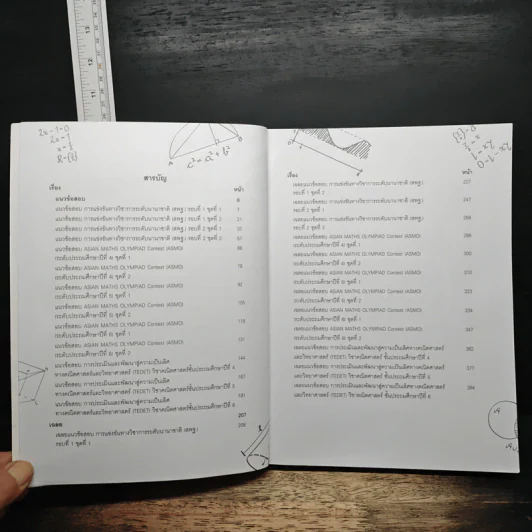 2x-1=0
2x=1
c² = a² + b²
สารบัญ
เรื่อง
หน้า
แนวข้อสอบ
6
แนวข้อสอบ การแข่งขันทางวิชาการระดับนานาชาติ (สพฐ.) รอบที่ 1 ชุดที่ 1
7
แนวข้อสอบ การแข่งขันทางวิชาการระดับนานาชาติ (สพฐ.) รอบที่ 1 ชุดที่ 2
แนวข้อสอบ การแข่งขันทางวิชาการระดับนานาชาติ (สพฐ.) รอบที่ 2 ชุดที่ 1
แนวข้อสอบ การแข่งขันทางวิชาการระดับนานาชาติ (สพฐ.) รอบที่ 2 ชุดที่ 2
แนวข้อสอบ ASIAN MATHS OLYMPIAD Contest (ASMO)
ระดับประถมศึกษาปีที่ 4) ชุดที่ 1
แนวข้อสอบ ASIAN MATHS OLYMPIAD Contest (ASMO)
ระดับประถมศึกษาปีที่ 4) ชุดที่ 2
แนวข้อสอบ ASIAN MATHS OLYMPIAD Contest (ASMO)
ระดับประถมศึกษาปีที่ 5) ชุดที่ 1
แนวข้อสอบ ASIAN MATHS OLYMPIAD Contest (ASMO)
ระดับประถมศึกษาปีที่ 5) ชุดที่ 2
แนวข้อสอบ ASIAN MATHS OLYMPIAD Contest (ASMO)
ระดับประถมศึกษาปีที่ 6) ชุดที่ 1
แนวข้อสอบ ASIAN MATHS OLYMPIAD Contest (ASMO)
ระดับประถมศึกษาปีที่ 6) ชุดที่ 2
แนวข้อสอบ การประเมินและพัฒนาสู่ความเป็นเลิศ
ทางคณิตศาสตร์และวิทยาศาสตร์ (TEDET) วิชาคณิตศาสตร์ชั้นประถมศึกษาปีที่ 4
แนวข้อสอบ การประเมินและพัฒนาสู่ความเป็นเลิศ
ทางคณิตศาสตร์และวิทยาศาสตร์ (TEDET) วิชาคณิตศาสตร์ชั้นประถมศึกษาปีที่ 5
แนวข้อสอบ การประเมินและพัฒนาสู่ความเป็นเลิศ
ทางคณิตศาสตร์และวิทยาศาสตร์ (TEDET) วิชาคณิตศาสตร์ชั้นประถมศึกษาปีที่ 6
เฉลย
207
เฉลยแนวข้อสอบ การแข่งขันทางวิชาการระดับนานาชาติ (สพฐ.)
รอบที่ 1 ชุดที่ 1
เรื่อง
หน้า
เฉลยแนวข้อสอบ การแข่งขันทางวิชาการระดับนานาชาติ (สพฐ.)
รอบที่ 1 ชุดที่ 2
เฉลยแนวข้อสอบ การแข่งขันทางวิชาการระดับนานาชาติ (สพฐ.)
247
รอบที่ 2 ชุดที่ 1
เฉลยแนวข้อสอบ การแข่งขันทางวิชาการระดับนานาชาติ (สพฐ.)
รอบที่ 2 ชุดที่ 2
เฉลยแนวข้อสอบ ASIAN MATHS OLYMPIAD Contest (ASMO)
ระดับประถมศึกษาปีที่ 4) ชุดที่ 1
เฉลยแนวข้อสอบ ASIAN MATHS OLYMPIAD Contest (ASMO)
ระดับประถมศึกษาปีที่ 4) ชุดที่ 2
เฉลยแนวข้อสอบ ASIAN MATHS OLYMPIAD Contest (ASMO)
310
ระดับประถมศึกษาปีที่ 5) ชุดที่ 1
เฉลยแนวข้อสอบ ASIAN MATHS OLYMPIAD Contest (ASMO)
323
ระดับประถมศึกษาปีที่ 5) ชุดที่ 2
เฉลยแนวข้อสอบ ASIAN MATHS OLYMPIAD Contest (ASMO)
334
ระดับประถมศึกษาปีที่ 6) ชุดที่ 1
เฉลยแนวข้อสอบ ASIAN MATHS OLYMPIAD Contest (ASMO)
347
ระดับประถมศึกษาปีที่ 6) ชุดที่ 2
เฉลยแนวข้อสอบ การประเมินและพัฒนาสู่ความเป็นเลิศทางคณิตศาสตร์
362
และวิทยาศาสตร์ (TEDET) วิชาคณิตศาสตร์ ชั้นประถมศึกษาปีที่ 4
เฉลยแนวข้อสอบ การประเมินและพัฒนาสู่ความเป็นเลิศทางคณิตศาสตร์
377
และวิทยาศาสตร์ (TEDET) วิชาคณิตศาสตร์ ชั้นประถมศึกษาปีที่ 5
เฉลยแนวข้อสอบ การประเมินและพัฒนาสู่ความเป็นเลิศทางคณิตศาสตร์
394
และวิทยาศาสตร์ (TEDET) วิชาคณิตศาสตร์ ชั้นประถมศึกษาปีที่ 6
13
12
11